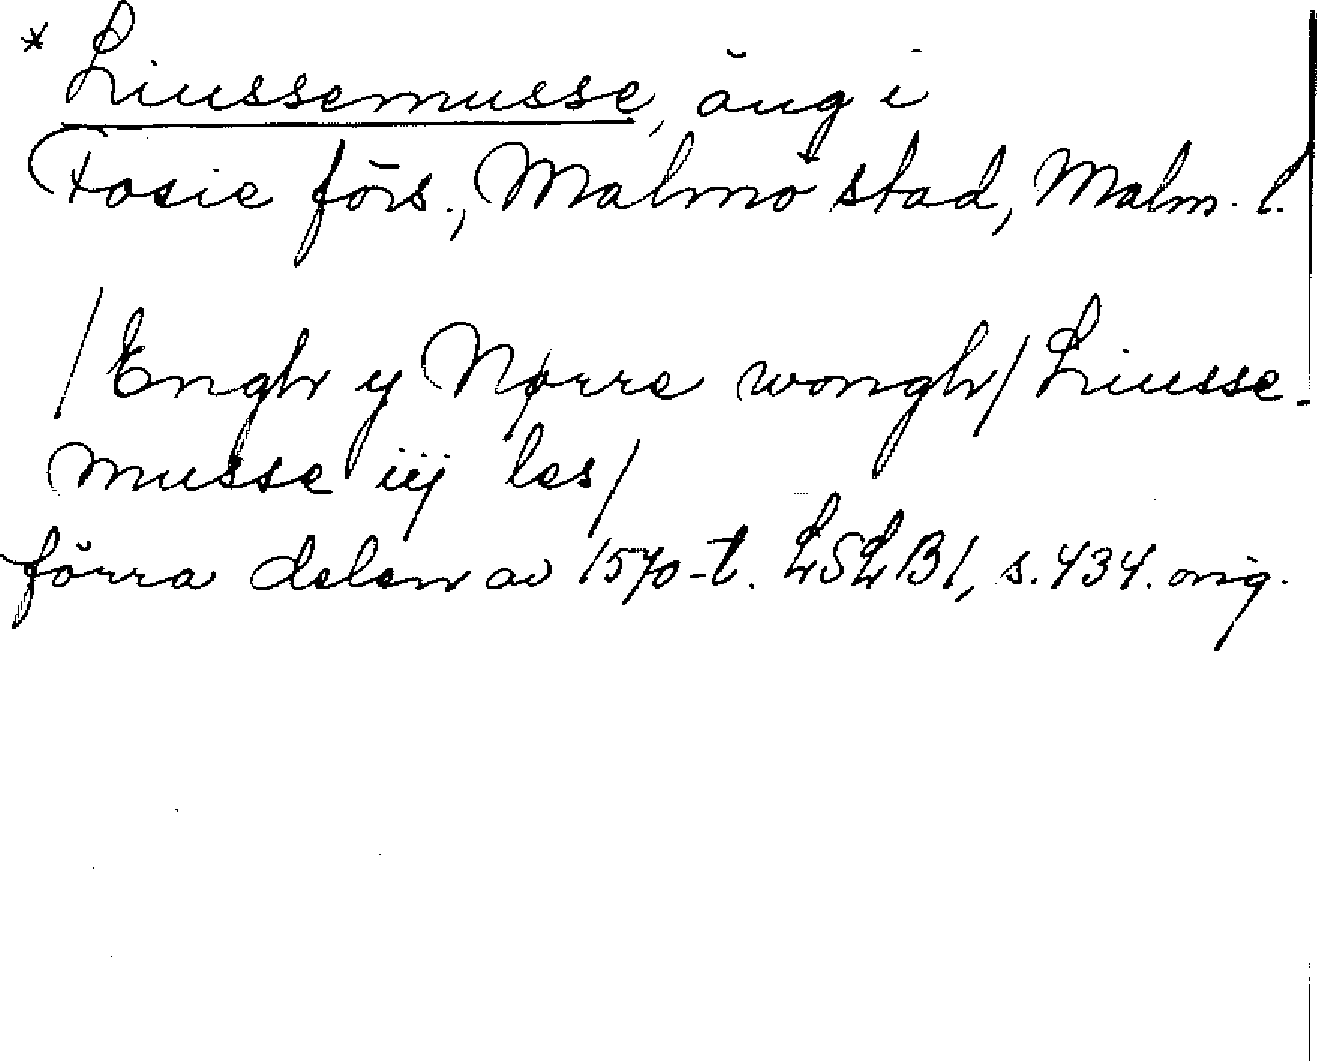 * Liussemusse, äng i
Fosie förs., Malmö stad, Malm. l.
/Engh y Nørre wongh/ Liusse-
musse iij les/
förra delen av 1570-t. LSLB1, s. 434. orig.